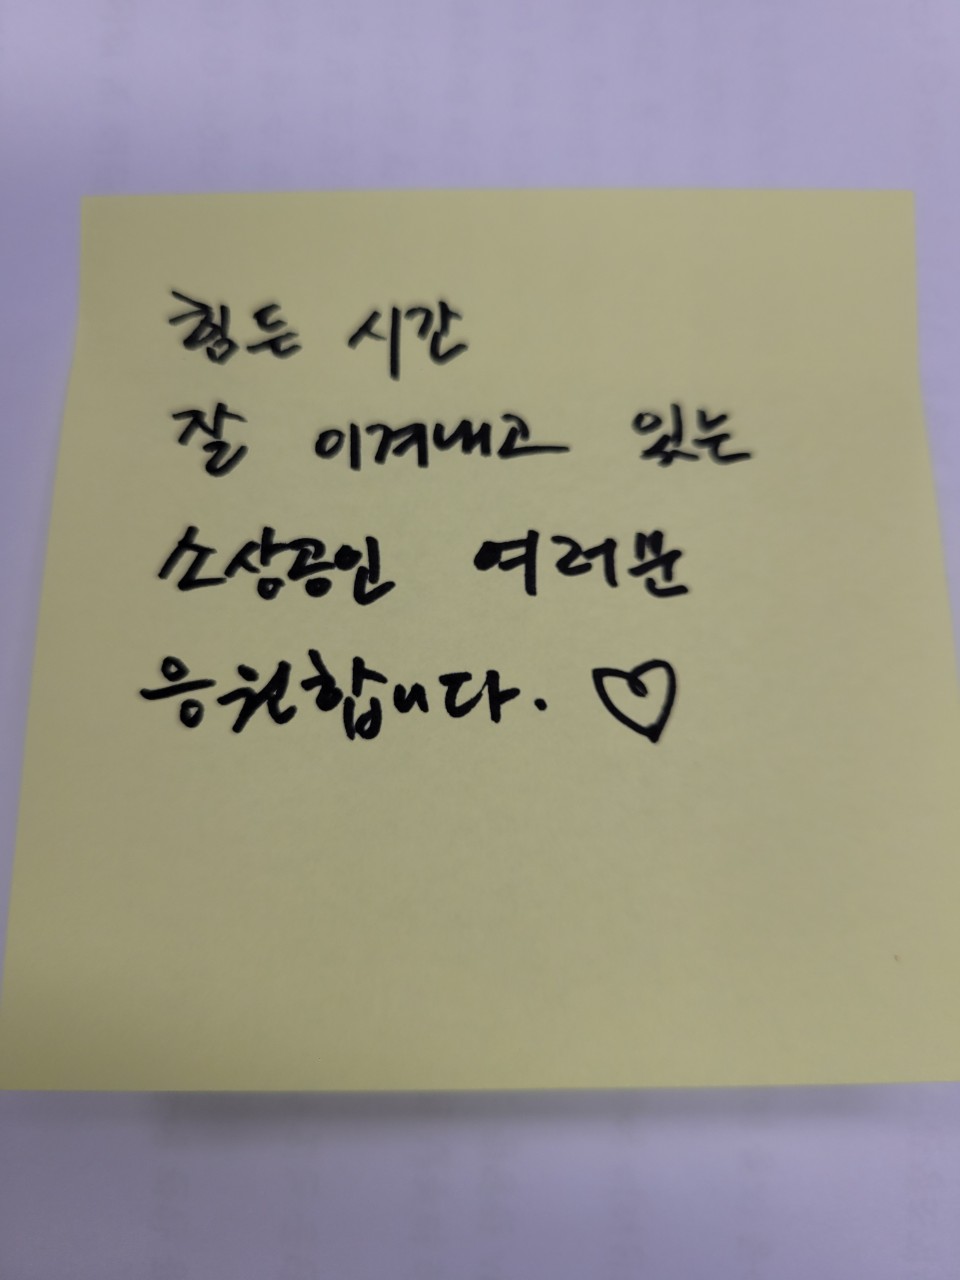 힘든 시간
잘 이겨내고 있는
소상공인 여러분
응원합니다. ♡